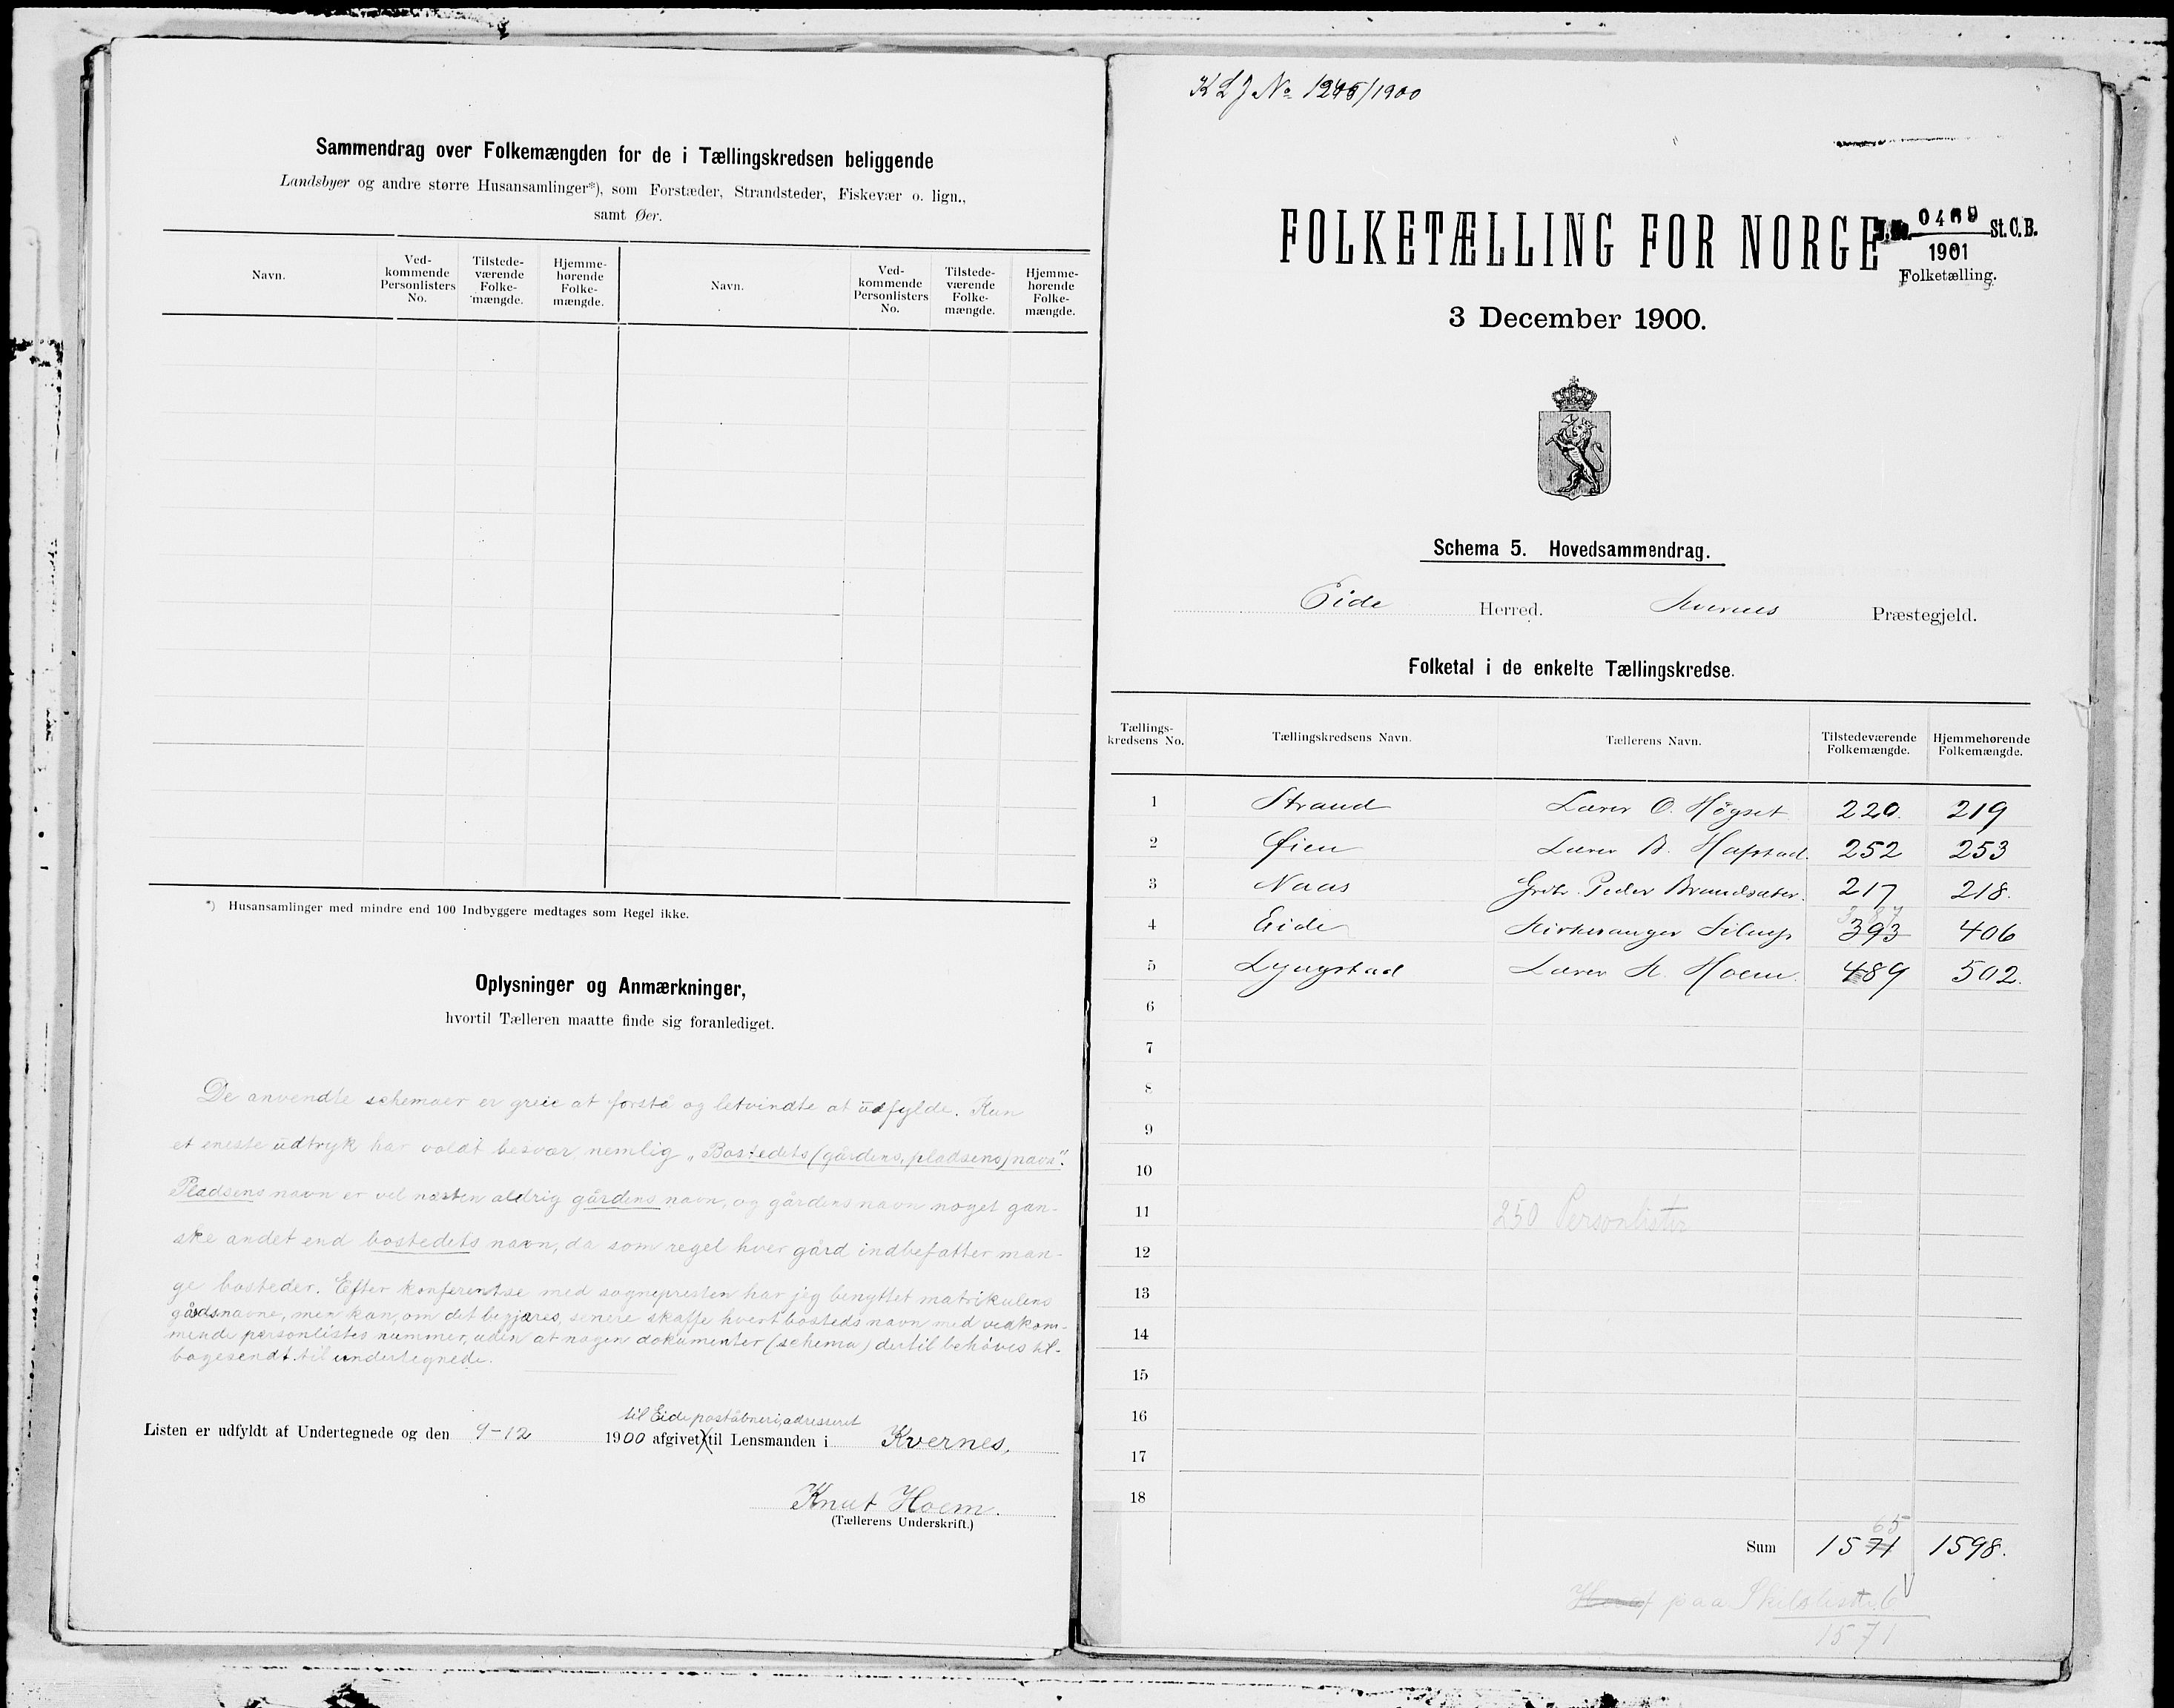 Sammendrag over Folkemængden for de i Tællingskredsen beliggende
Landsbyer og andre større Husansamlinger*), som Forstæder, Strandsteder, Fiskevær o. lign.,
samt Øer.
Navn. Ved-kommende Personlisters No. Tilstede-værende Folke-mængde. Hjemme-hørende Folke-mængde. Navn. Ved-kommende Personlisters No. Tilstede-værende Folke-mængde. Hjemme-hørende Folke-mængde.
*) Husansamlinger med mindre end 100 Indbyggere medtages som Regel ikke.
Oplysninger og Anmærkninger,
hvortil Tælleren maatte finde sig foranlediget.
De anvendte schemaer er greie at forstå og letvindte at udfylde. Kun
et eneste udtryk har voldt besvær, nemlig „Bostedets (gårdens, pladsens) navn".
Pladsens navn er vel næsten aldrig gårdens navn, og gårdens navn noget gan-
ske andet end bostedets navn, da som regel hver gård indbefatter man-
ge bosteder. Efter konferentse med sognepresten har jeg benyttet matrikulens
gårdsnavne, men kan, om det begjæres, senere skaffe hvert bosteds navn med vedkom-
mende personlistes nummer, uden at nogen dokumenter (schema) dertil behøves til-
bagesendt til undertegnede.
til Eide poståbneri, adresseret
Listen er udfyldt af Undertegnede og den 9-12 1900 afgivet til Lensmanden i Kvernes.
Knut Hoem.
(Tællerens Underskrift.)
K L J No 1245/1900
FOLKETÆLLING FOR NORGE
J. No. 0469 St. C. B.
1901
Folketælling.
3 December 1900.
Schema 5. Hovedsammendrag.
Eide Herred. Kvernes Præstegjeld.
Folketal i de enkelte Tællingskredse.
Tællings-kredsens No. Tællingskredsens Navn. Tællerens Navn. Tilstedeværende Folkemængde. Hjemmehørende Folkemængde.
1 Strand Lærer O. Högset 220. 219
2 Øien Lærer B. Hafstad. 252 253
3 Naas Grdbr. Peder Brandsæter. 217 218.
387
4 Eide Kirkesanger 393 406
5 Lyngstad Lærer K. Hoem. 489 502.
6
7
8
9
10
11 250 Personlister
12
13
14
15
16
17
18
65
Sum 1571 1598.
Heraf paa Skilsliste 6
1571